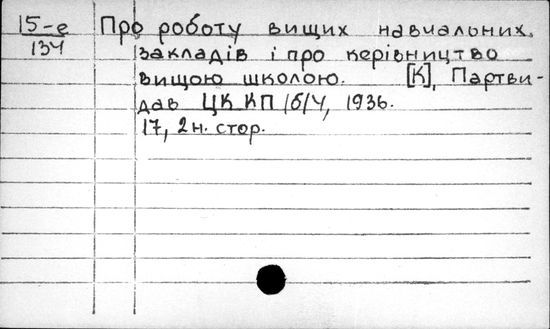 15-е Про роботу вищих навчальних
134 закладів і про керівництво
вищою школою. [К], Партви-
дав ЦК КП/б/У, 1936.
17, 2 н. стор.